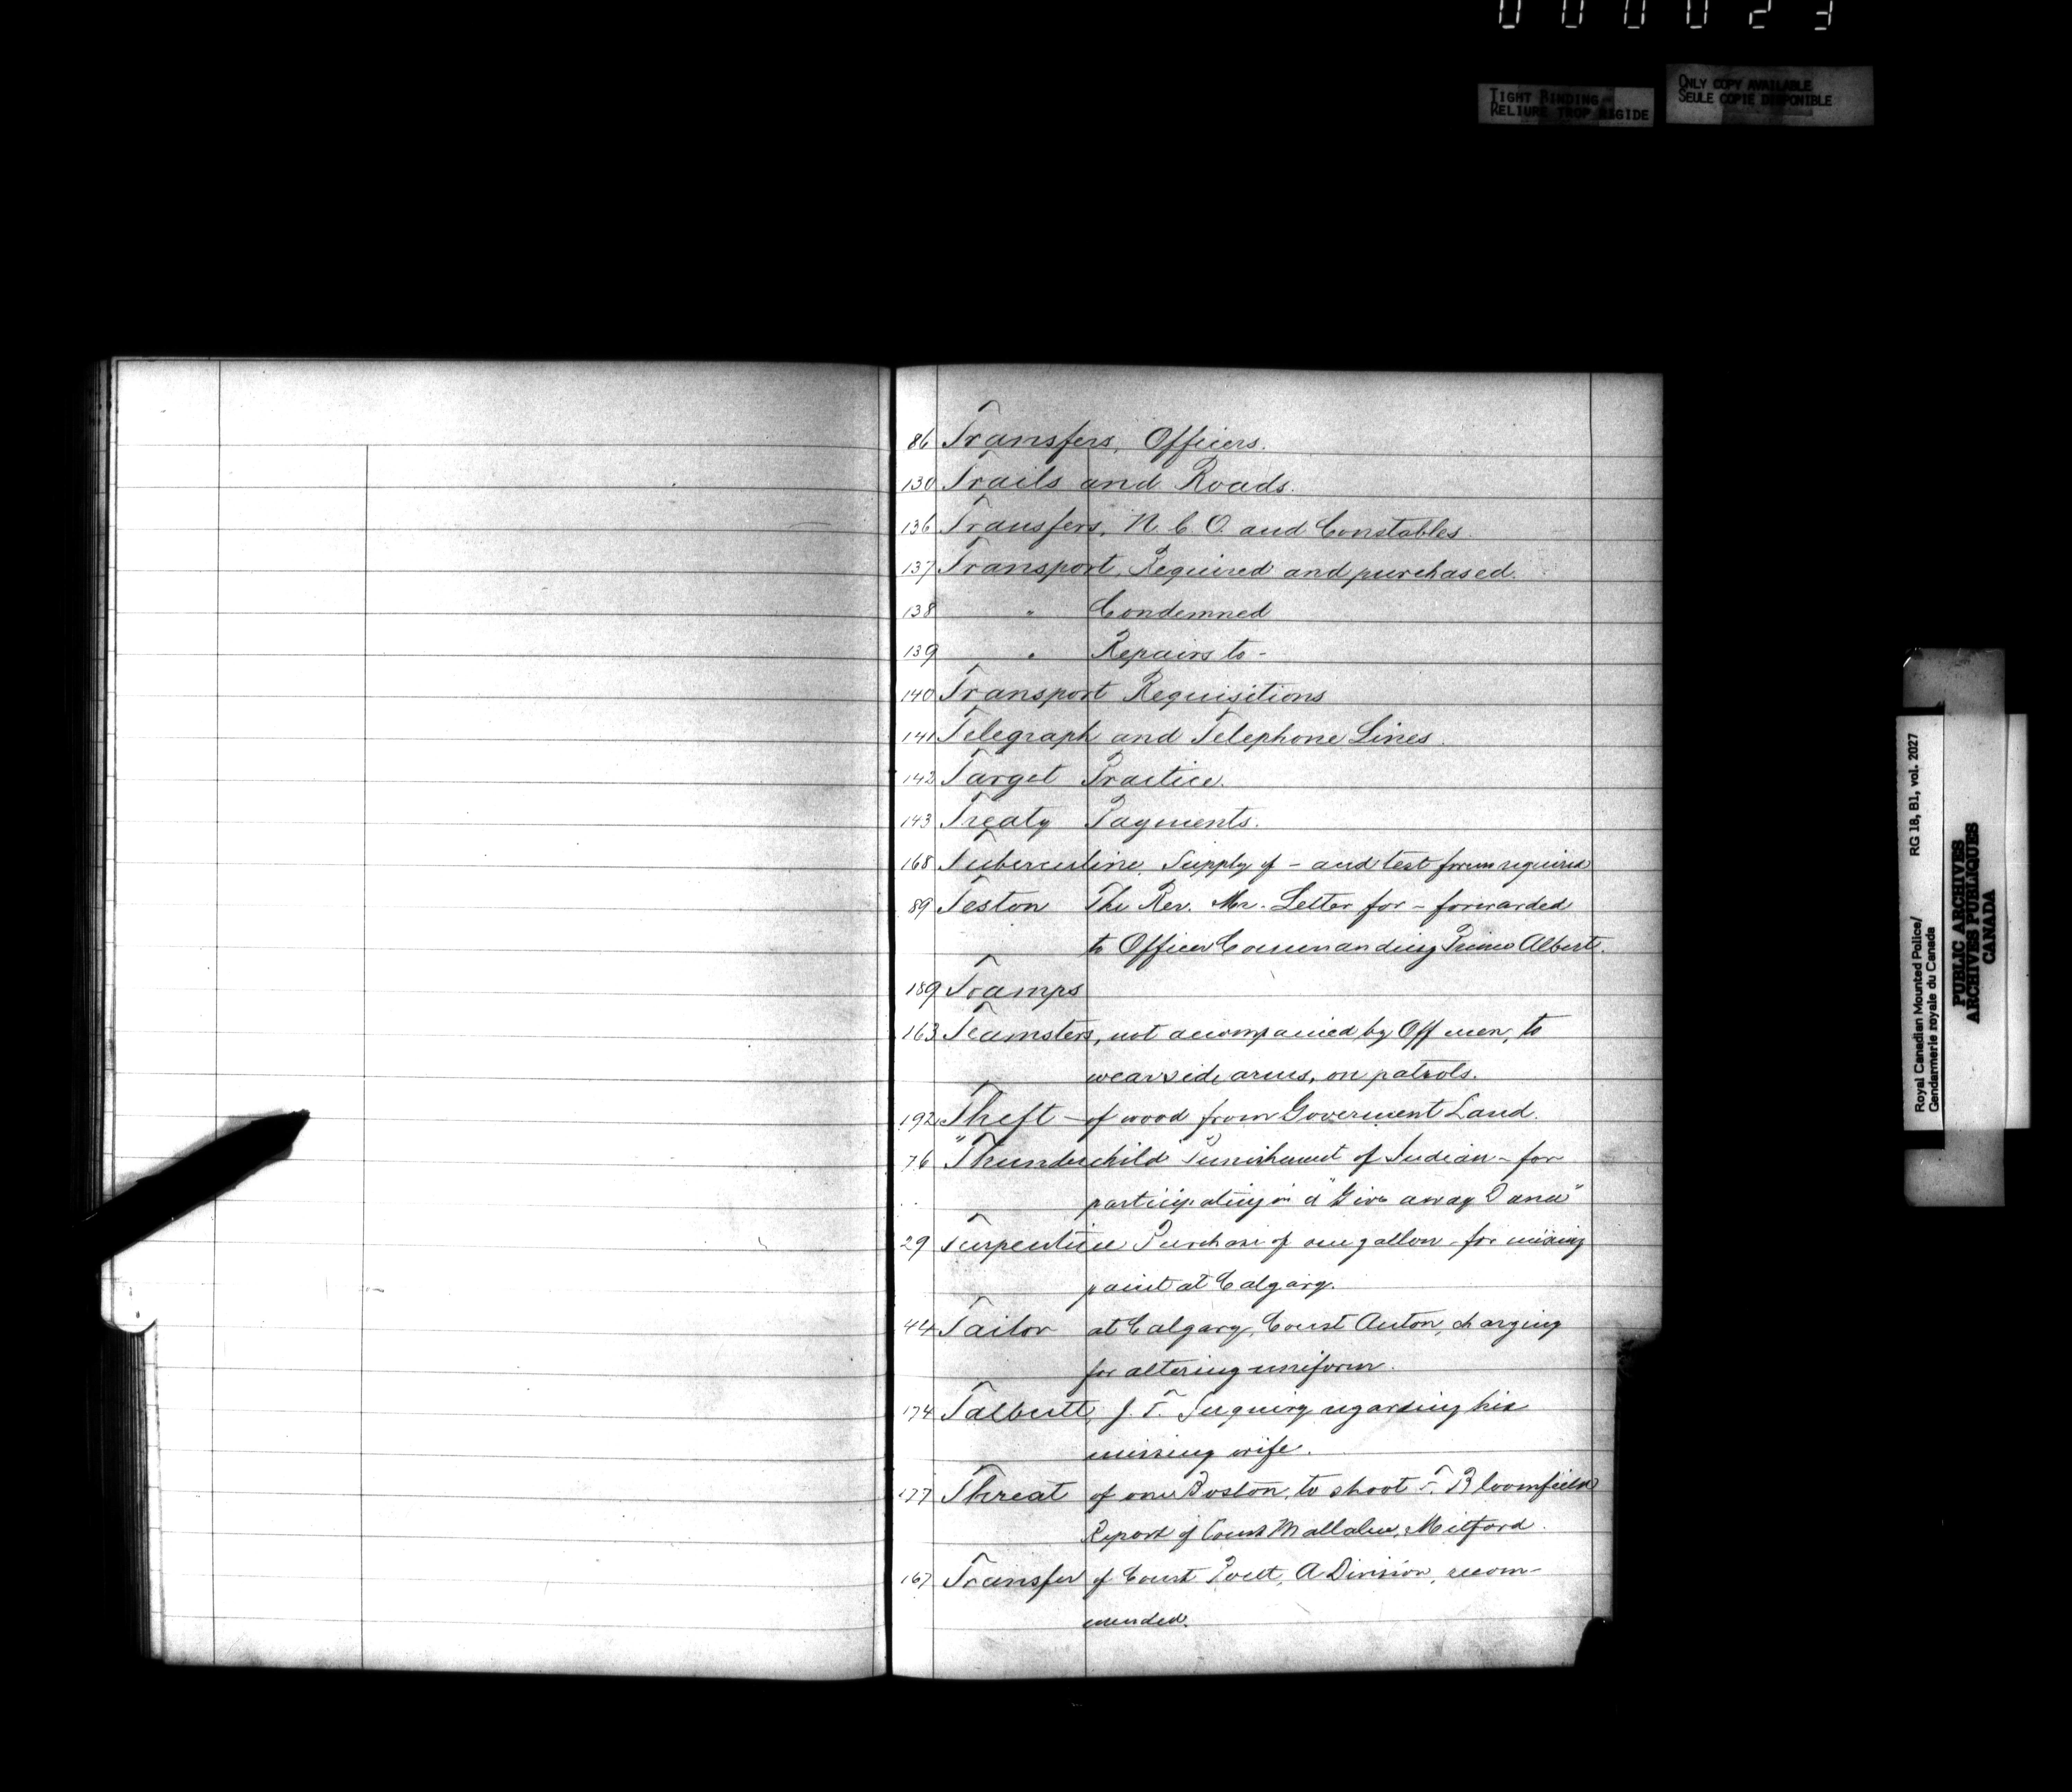 000023
TIGHT BINDING
RELIURE TROP RIGIDE
ONLY COPY AVAILABLE
SEULE COPIE DISPONIBLE
86 Transfers, Officers.
130 Trails and Roads.
136 Transfers, N.C.O. and Constables
137 Transport, Required and purchased.
138 " Condemned
139 " Repairs to -
140 Transport Requisitions
141 Telegraph and Telephone Lines.
142 Target Practice.
143 Treaty Payments.
168 Tuberculine, Supply of - and test forms required
89 Teston The Rev. Mr. Letter for - forwarded
to Officer Commanding Prince Albert.
189 Tramps
163 Teamsters, not accompanied by Off men, to
wear side arms, on patrols.
192 Theft - of wood from Goverment Land.
76 "Thunderchild" Punishment of Indian - for
participating in a "Give away Dance"
29 Turpentine Purchase of one gallon - for mixing
paint at Calgary.
44 Tailor at Calgary, Const Anton, charging
for altering uniform.
174 Talbutt, J. T. Inquiry regarding his
missing wife.
177 Threat of one Boston, to shoot T. Bloomfield
Report of Const Mallalue, Mitford.
167 Transfer of Const Poett, A Division, recom-
mended.
Royal Canadian Mounted Police/ RG 18, B1, vol. 2027
Gendarmerie royale du Canada
PUBLIC ARCHIVES
ARCHIVES PUBLIQUES
CANADA